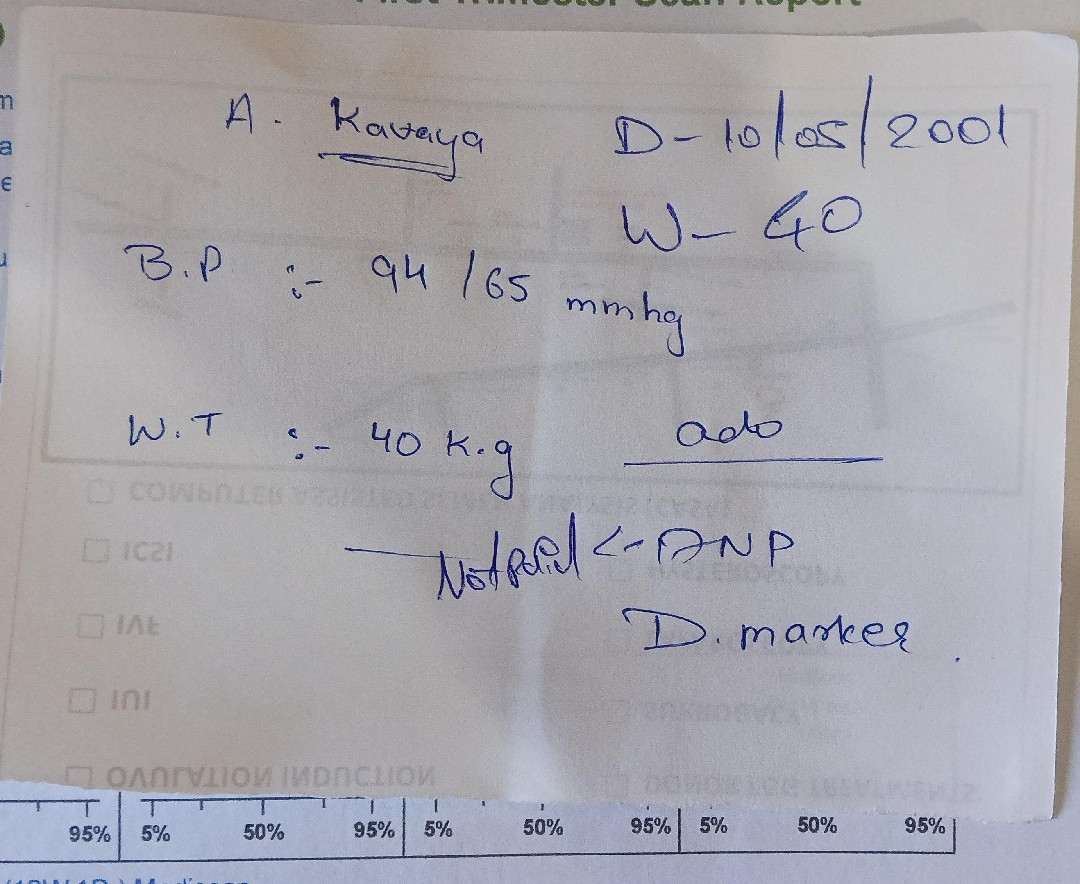 First Trimester Scan Report
A. Kavaya D-10/05/2001
W- 40
B.P :- 94/65 mmhg
W.T :- 40 K.g
ado
<- ANP
D. marker.
COMPUTER ASSISTED SEMEN ANALYSIS (CASA)
ICSI
HYSTEROSCOPY
IVF
IUI
SURROGACY
OVULATION INDUCTION
DONOR EGG TREATMENTS
95% 5% 50% 95% 5% 50% 95% 5% 50% 95%